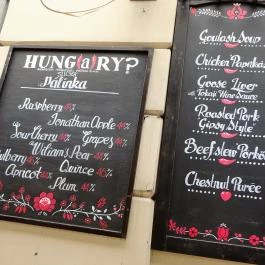 HUNG(a)RY?
Pálinka
Raspberry 44%
Jonathan Apple 44%
Sour Cherry 44% Grapes 44%
Williams Pear 44%
Mulberry 44% Quince 44%
Apricot 44%
Plum 44%
Goulash Soup
Chicken Paprikás
Goose Liver
with Tokaji Wine Sauce
Roasted Pork
Gipsy Style
Beef Stew Pörkö
Chestnut Purée